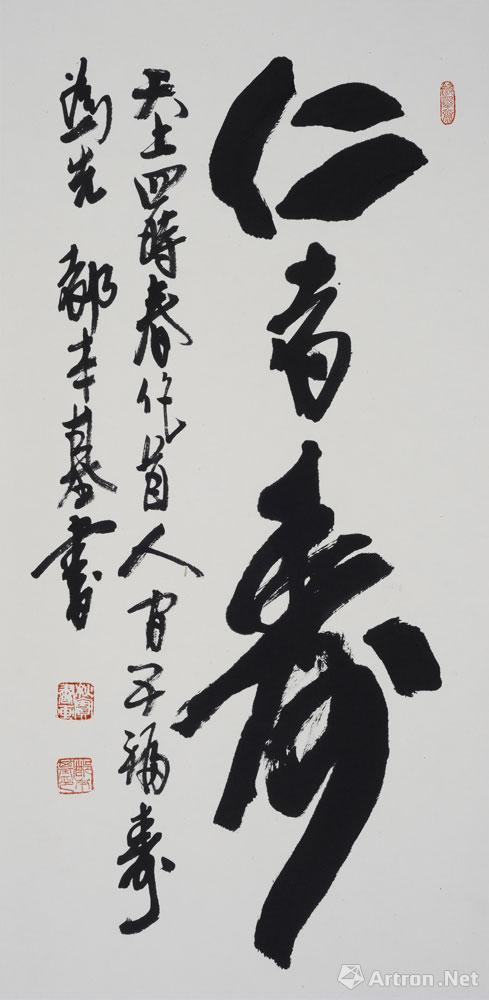 仁者壽
天上四時春作首人间五福壽
為先 都本基書
Artron.Net